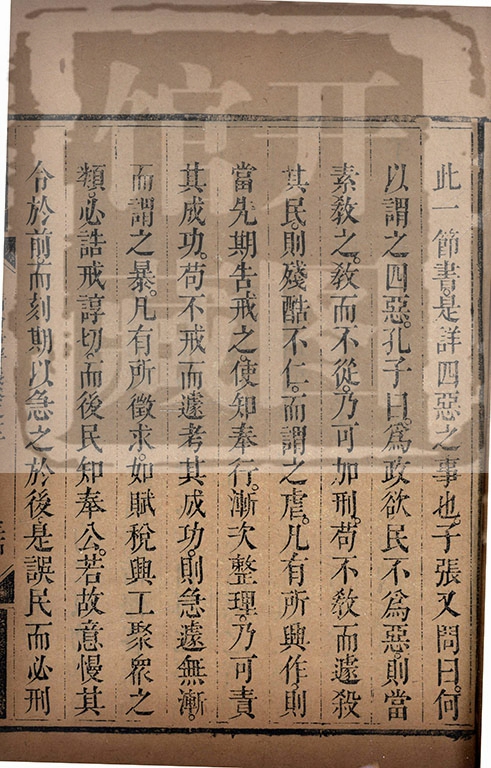 此一節書是詳四惡之事也。子張又問曰。何
以謂之四惡。孔子曰。爲政欲民不爲惡。則當
素敎之。敎而不從。乃可加刑。苟不敎而遽殺
其民。則殘酷不仁。而謂之虐。凡有所興作。則
當先期告戒之。使知奉行。漸次整理。乃可責
其成功。苟不戒而遽考其成功。則急遽無漸。
而謂之暴。凡有所徵求。如賦稅興工聚衆之
類。必誥戒諄切。而後民知奉公。若故意慢其
令於前。而刻期以急之於後。是誤民而必刑